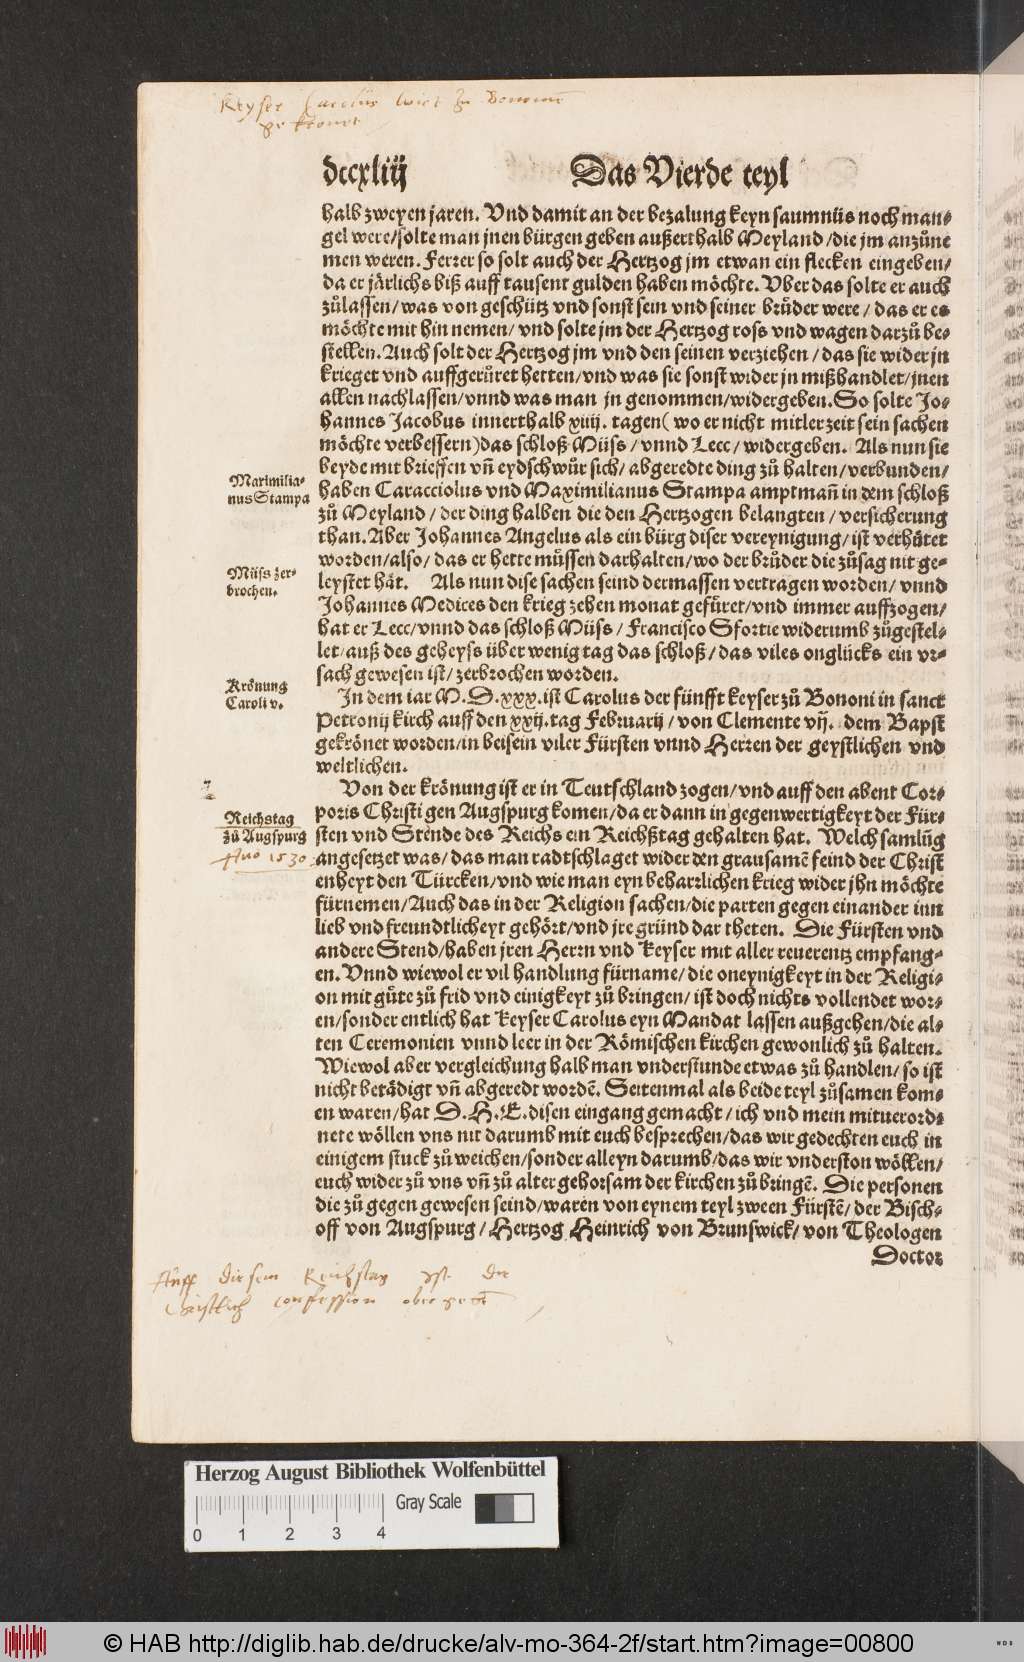 Keyser Carolus wirt zu Bononie
gekronet
dccxliij Das Vierde teyl
halb zweyen jaren. Vnd damit an der bezalung keyn saumnüs noch man-
gel were/solte man jnen bürgen geben außerthalb Meyland/die jm anzůne
men weren. Ferrer so solt auch der Hertzog jm etwan ein flecken eingeben/
da er järlichs biß auff tausent gulden haben möchte. Vber das solte er auch
zůlassen/was von geschütz vnd sonst sein vnd seiner brůder were/das er es
möchte mit hin nemen/vnd solte jm der Hertzog ross vnd wagen darzů be-
stellen. Auch solt der Hertzog jm vnd den seinen verziehen/das sie wider jn
krieget vnd auffgerůret hetten/vnd was sie sonst wider jn mißhandlet/jnen
allen nachlassen/vnnd was man jn genommen/widergeben. So solte Jo-
hannes Jacobus innerthalb xiiij. tagen (wo er nicht mitler zeit sein sachen
möchte verbessern) das schloß Müss/vnnd Lecc/widergeben. Als nun sie
beyde mit brieffen vñ eydschwůr sich/abgeredte ding zů halten/verbunden/
Maximilia-
nus Stampa
haben Caracciolus vnd Maximilianus Stampa amptmañ in dem schloß
zů Meyland/der ding halben die den Hertzogen belangten/versicherung
than. Aber Johannes Angelus als ein bürg diser vereynigung/ist verhåtet
worden/also/das er hette müssen darhalten/wo der brůder die zůsag nit ge-
Müss zer-
brochen.
leystet håt. Als nun dise sachen seind dermassen vertragen worden/vnnd
Johannes Medices den krieg zehen monat gefůret/vnd immer auffzogen/
hat er Lecc/vnnd das schloß Müss/Francisco Sfortie widerumb zůgestel-
let/auß des geheyss über wenig tag das schloß/das viles onglücks ein vr-
sach gewesen ist/zerbrochen worden.
Krönung
Caroli v.
Jn dem iar M.D.xxx. ist Carolus der fünfft keyser zů Bononi in sanct
Petronij kirch auff den xxij. tag Februarij/von Clemente vij. dem Bapst
gekrönet worden/in beisein viler Fürsten vnnd Herren der geystlichen vnd
weltlichen.
Von der krönung ist er in Teutschland zogen/vnd auff den abent Cor-
Reichstag
zů Augspurg
Ano 1530
poris Christi gen Augspurg komen/da er dann in gegenwertigkeyt der Für-
sten vnd Stende des Reichs ein Reichßtag gehalten hat. Welch samlũg
angesetzet was/das man radtschlaget wider den grausamẽ feind der Christ
enheyt den Türcken/vnd wie man eyn beharrlichen krieg wider jhn möchte
fürnemen/Auch das in der Religion sachen/die parten gegen einander inn
lieb vnd freundtlicheyt gehört/vnd jre gründ dar theten. Die Fürsten vnd
andere Stend/haben jren Herrn vnd Keyser mit aller reuerentz empfang-
en. Vnnd wiewol er vil handlung fürname/die oneynigkeyt in der Religi-
on mit güte zů frid vnd einigkeyt zů bringen/ist doch nichts vollendet wor-
en/sonder entlich hat Keyser Carolus eyn Mandat lassen außgehen/die al-
ten Ceremonien vnnd leer in der Römischen kirchen gewonlich zů halten.
Wiewol aber vergleichung halb man vnderstunde etwas zů handlen/so ist
nicht betådigt vñ abgeredt wordẽ. Seitenmal als beide teyl zůsamen kom-
en waren/hat D.H.E. disen eingang gemacht/ich vnd mein mituerord-
nete wöllen vns nit darumb mit euch besprechen/das wir gedechten euch in
einigem stuck zů weichen/sonder alleyn darumb/das wir vnderston wöllen/
euch wider zů vns vñ zů alter gehorsam der kirchen zů bringẽ. Die personen
die zů gegen gewesen seind/waren von eynem teyl zween Fürstẽ/der Bisch-
off von Augspurg/Hertzog Heinrich von Brunswick/von Theologen
Doctor
Auff diesem Reichstag ist die
Christlich confession obergebē
Herzog August Bibliothek Wolfenbüttel
Gray Scale
0 1 2 3 4
© HAB http://diglib.hab.de/drucke/alv-mo-364-2f/start.htm?image=00800